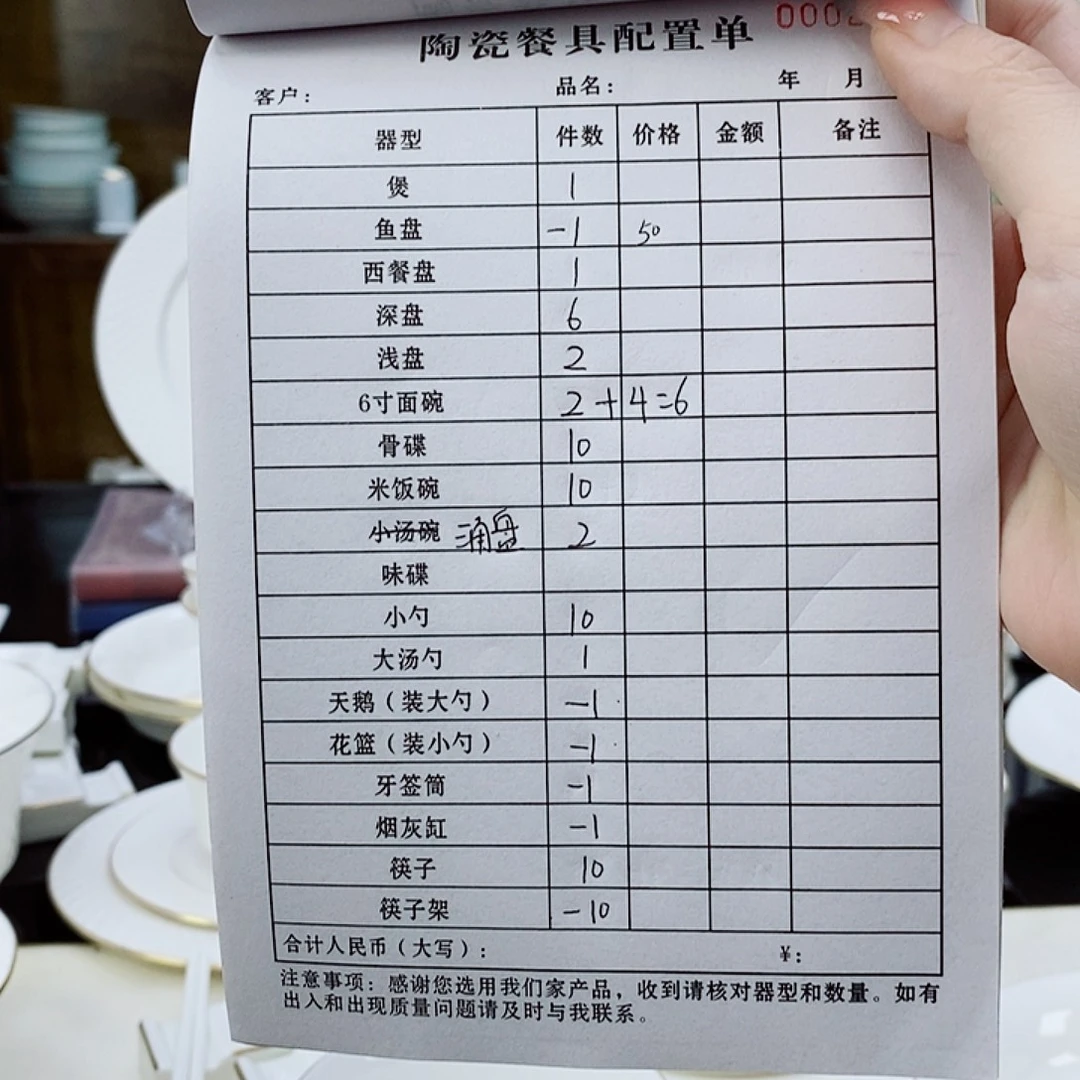 陶瓷餐具配置单 000
客户： 品名： 年 月
器型 件数 价格 金额 备注
煲 1
鱼盘 -1 50
西餐盘 1
深盘 6
浅盘 2
6寸面碗 2+4=6
骨碟 10
米饭碗 10
小汤碗 涌盘 2
味碟
小勺 10
大汤勺 1
天鹅（装大勺） -1
花篮（装小勺） -1
牙签筒 -1
烟灰缸 -1
筷子 10
筷子架 -10
合计人民币（大写）： ¥：
注意事项：感谢您选用我们家产品，收到请核对器型和数量。如有
出入和出现质量问题请及时与我联系。